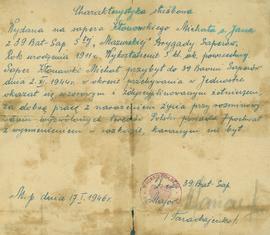 Charakterystyka służbowa
Wydana na sapera Kłonowskiego Michała s. Jana
z 39 Bat. Sap. 5tej „Mazurskiej" Brygady Saperów.
Rok urodzenia 1911 r. Wykształcenie 7 kl. szk. powszechnej.
Saper Kłonowski Michał przybył do 39 baonu Saperów
dnia 2. XI. 1944 r. w okresie przebywania w Jednostce
okazał się wzorowym i zdyscyplinowanym żołnierzem.
Za dobrą pracę z narażeniem życia przy rozminowy-
waniu wyzwolonych terenów Polski posiada pochwał
z wymienieniem w rozkazie, karanym nie był.
39. Bat. Sap.
Major
M.p. dnia 17. I. 1946 r.